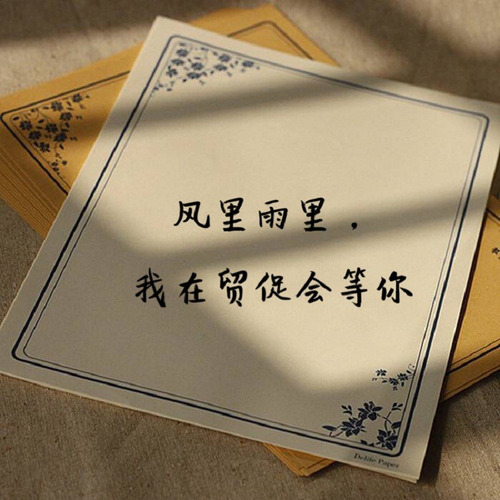 风里雨里，
我在贸促会等你
Delife Paper